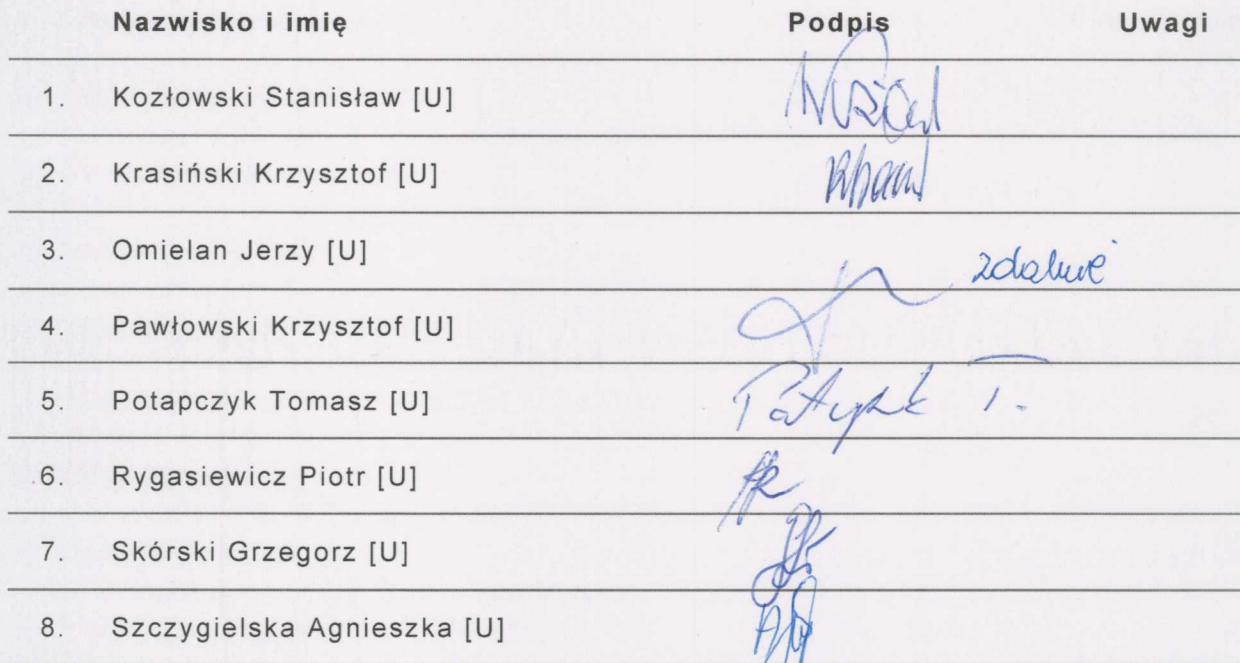 Nazwisko i imię Podpis Uwagi
1. Kozłowski Stanisław [U]
2. Krasiński Krzysztof [U]
3. Omielan Jerzy [U] zdalnie
4. Pawłowski Krzysztof [U]
5. Potapczyk Tomasz [U]
6. Rygasiewicz Piotr [U]
7. Skórski Grzegorz [U]
8. Szczygielska Agnieszka [U]